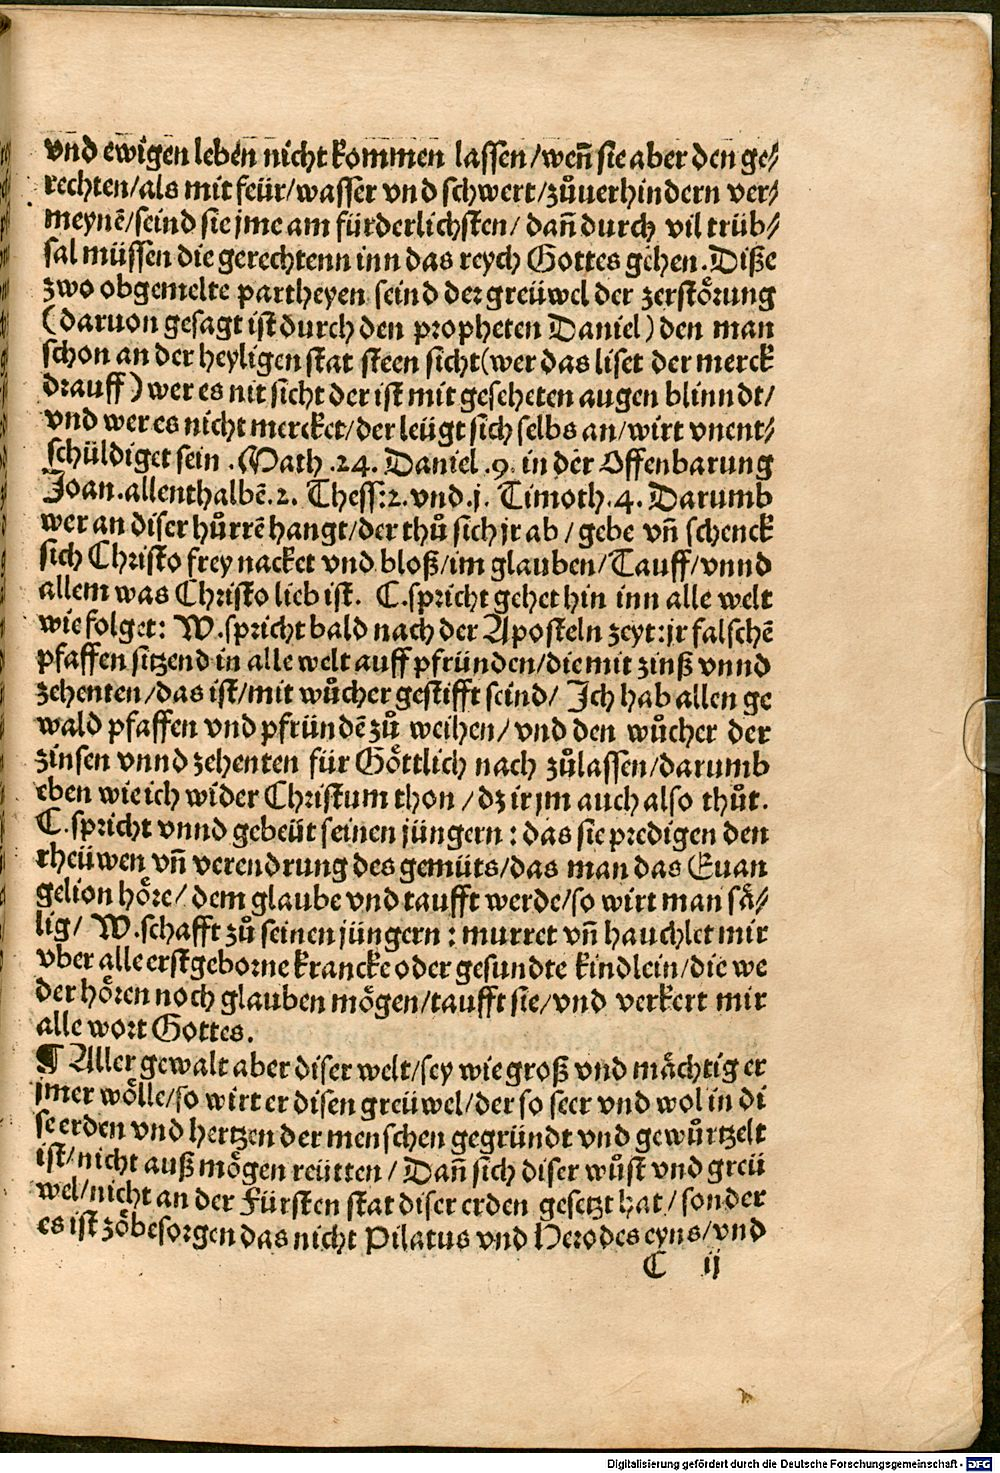 vnd ewigen leben nicht kommen lassen/wen̄ sie aber den ge⸗
rechten/als mit feür/wasser vnd schwert/zůuerhindern ver⸗
meynē/seind sie jme am fürderlichsten/ dan̄ durch vil trüb⸗
sal müssen die gerechtenn inn das reych Gottes gehen. Diße
zwo obgemelte partheyen seind der greüwel der zerstörung
(daruon gesagt ist durch den propheten Daniel) den man
schon an der heyligen stat steen sicht (wer das liset der merck
drauff) wer es nit sicht der ist mit geseheten augen blinndt/
vnd wer es nicht mercket/der leügt sich selbs an/wirt vnent⸗
schüldiget sein .Math .24. Daniel .9. in der Offenbarung
Joan. allenthalbē. 2. Thess:2. vnd .j. Timoth. 4. Darumb
wer an diser hůrrē hangt/der thů sich jr ab / gebe vn̄ schenck
sich Christo frey nacket vnd bloß/im glauben/Tauff/vnnd
allem was Christo lieb ist. C. spricht gehet hin inn alle welt
wie folget: W. spricht bald nach der Aposteln zeyt: jr falschē
pfaffen sitzend in alle welt auff pfründen/die mit zinß vnnd
zehenten/das ist/mit wůcher gestifft seind/ Ich hab allen ge
wald pfaffen vnd pfründē zů weihen/ vnd den wůcher der
zinsen vnnd zehenten für Göttlich nach zůlassen/darumb
eben wie ich wider Christum thon /dz ir jm auch also thůt.
C. spricht vnnd gebeüt seinen jüngern : das sie predigen den
rheüwen vn̄ verendrung des gemüts/das man das Euan
gelion höre/ dem glaube vnd taufft werde/so wirt man sä⸗
lig/ W. schafft zů seinen jüngern : murret vn̄ hauchlet mir
vber alle erstgeborne krancke oder gesundte kindlein/die we
der hören noch glauben mögen/taufft sie/vnd verkert mir
alle wort Gottes.
¶ Aller gewalt aber diser welt/sey wie groß vnd mächtig er
jmer wölle/so wirt er disen greüwel/der so seer vnd wol in di
se erden vnd hertzen der menschen gegründt vnd gewůrtzelt
ist/nicht auß mögen reütten / Dan̄ sich diser wůst vnd greü
wel/nicht an der Fürsten stat diser erden gesetzt hat/ sonder
es ist zöbesorgen das nicht Pilatus vnd Herodes eyns/vnd
C ij
Digitalisierung gefördert durch die Deutsche Forschungsgemeinschaft - DFG